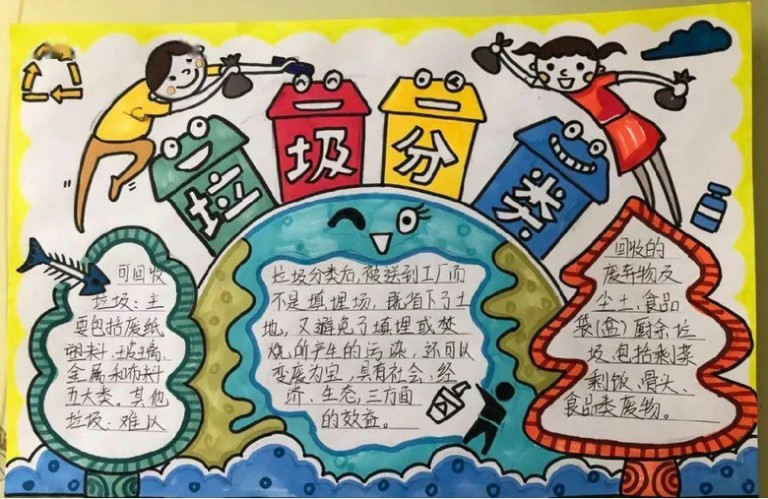 垃圾分类
可回收
垃圾：主
要包括废纸
塑料、玻璃、
金属和布料
五大类。其他
垃圾：难以
垃圾分类后，被送到工厂而
不是填埋场，既省下了土
地，又避免了填埋或焚
烧所产生的污染，还可以
变废为宝，具有社会、经
济、生态，三方面
的效益。
回收的
废弃物及
尘土、食品
袋(盒)厨余垃
圾、包括剩菜
剩饭、骨头、
食品类废物。